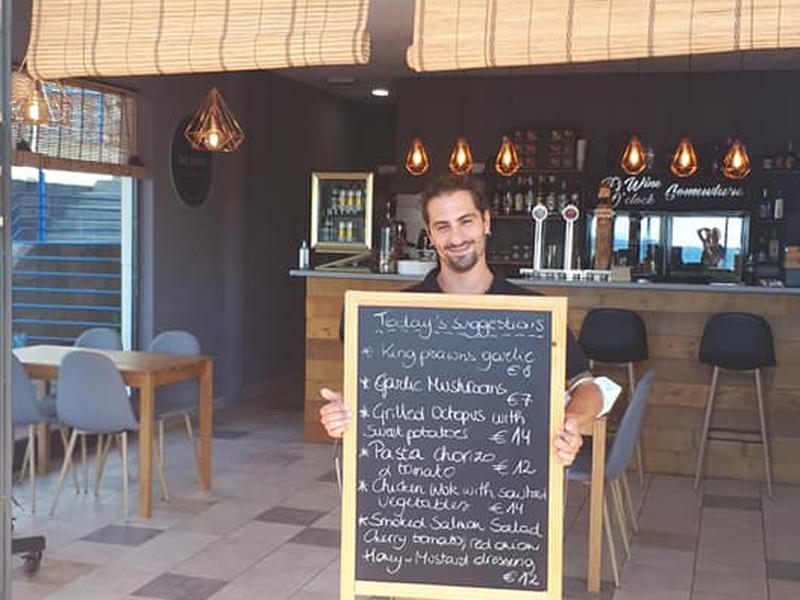 It's Wine
O'clock
Somewhere
Today's suggestions
* King prawns garlic
€8
* Garlic Mushrooms
€7
* Grilled Octopus with
Sweet potatoes €14
* Pasta chorizo
& tomato €12
* Chicken Wok with sauted
vegetables €14
* Smoked Salmon Salad
Cherry tomato, red onion
Honey-Mustard dressing
€12